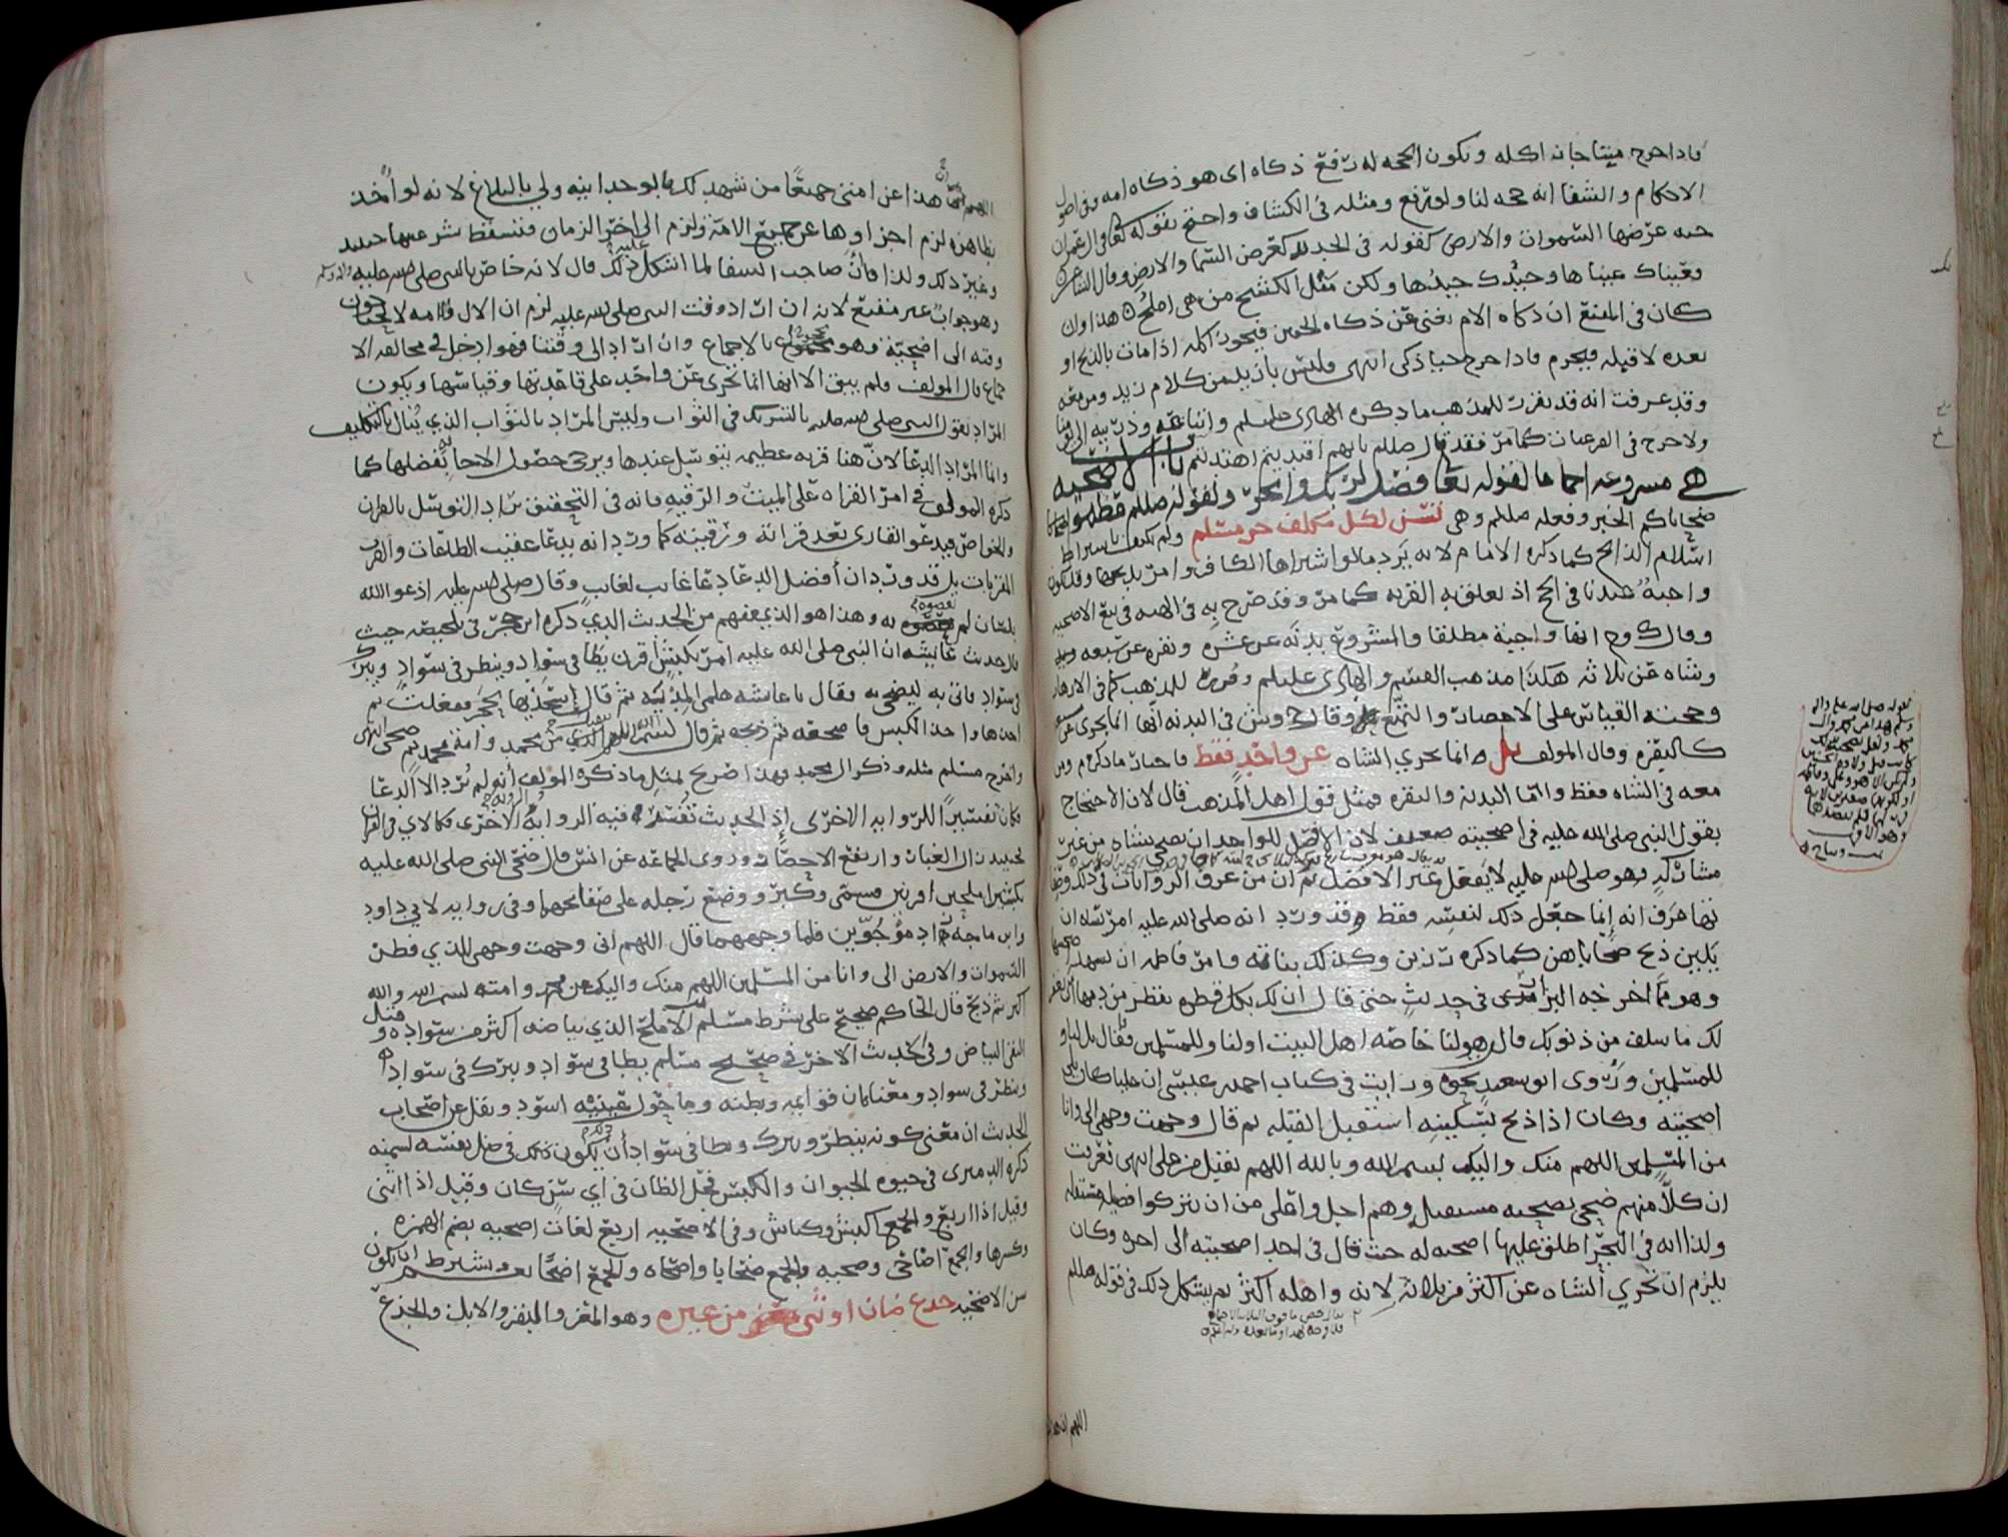 فاذا خرج ميتا جاز اكله ويكون الحجه له رفع ذكاه اى هو ذكاه امه وفى اصول
الاحكام والشفا انه حجه لنا ولو رفع ومثله فى الكشاف واحتج بقوله تعالى فى ال عمران
جنه عرضها السموات والارض كقوله فى الحديد كعرض السما والارض وقال الشاعر
فعيناك عيناها وجيدك جيدها ولكن مثل الكشح من هى املح هذا وان
كان فى المنتزع ان ذكاه الام تغنى عن ذكاه الجنين فيجوز اكله اذا مات بالذبح او
بعده لا قبله فيحرم فاذا خرج حيا ذكى انتهى فليس بازيد من كلام زيد ومن معه
وقد عرفت انه قد تقرر للمذهب ما ذكره الهادى عليلم واتباعه وذريته
ولا حرج فى الفرعيات كما مر فقد قال صللم بايهم اقتديتم اهتديتم باب الاضحيه
هى مشروعه اجماعا لقوله تعالى فصل لربك وانحر ولقوله صللم عظموا
ضحاياكم الخبر وفعله صللم وهى تسن لكل مكلف حر مسلم ولم يكتف باشتراط
اسلام الذابح كما ذكره الامام لانه يرد ما لو اشتراها الكافر وامر بذبحها وقد تكون
واجبة هديا فى الحج اذ تعلق به القربه كما مر وقد صرح به فى الهبه فى بيع الاضحيه
وقال ك وح انها واجبة مطلقا والمشروع بدنه عن عشره وبقره عن سبعه
وشاه عن ثلاثه هكذا مذهب القسم والهادى عليلم وقرر للمذهب كما فى الازهار
وحجته القياس على الاحصار والتمتع وقال ح وش فى البدنه انها انما تجزى عن سبعه
كالبقره وقال المولف بل انما تجزي الشاه عن واحد فقط فاجاب ما ذكره م ومن
معه فى الشاه فقط واما البدنه والبقره فمثل قول اهل المذهب قال لان الاحتجاج
بقول النبي صلى الله عليه فى اضحيته ضعيف لان الافضل للواحد ان يضحي بشاه من غير
مشارك وهو صلى الله عليه لا يفعل غير الافضل ثم ان من عرف الروايات فى ذلك
عرف انه انما جعل ذلك لنفسه فقط وقد ورد انه صلى الله عليه امر نساه ان
يلين ذبح ضحاياهن كما ذكره رزين وكذلك بناته وامر فاطمه ان تشهد
وهو ما اخرجه البزار فى حديث حتى قال ان لك بكل قطره تقطر من دمها ان يغفر
لك ما سلف من ذنوبك قال هو لنا خاصه اهل البيت او لنا وللمسلمين فقال بل لنا و
للمسلمين وروى ابو سعيد نحوه ورايت فى كتاب احمد بن عيسى ان عليا كان يلى
اضحيته وكان اذا ذبح بسكينه استقبل القبله ثم قال وجهت وجهى الى وانا
من المسلمين اللهم منك واليك بسم الله وبالله اللهم تقبل من على انتهى فعرفت
ان كلا منهم ضحى بضحيه مستقبل وهم اجل واعلى من ان يتركوا فضيله
ولذا انه فى البحر اطلق عليها اضحيه له حيث قال فى احد اضحيته الى اخره وكان
يلزم ان تجزي الشاه عن اكثر من ثلاثه لانه واهله اكثر ثم يشكل ذلك فى قوله صللم
اللهم ان هذا
اللهم هذا عن امتى جميعا من شهد لك بالوحدانيه ولي بالبلاغ لانه لو اخذ
بظاهره لزم اجزاوها عن جميع الامه ولزم الى اخر الزمان فتسقط شرعيتها حينئذ
وغير ذلك ولذا فان صاحب الشفا لما اشكل عليه ذلك قال لانه خاص بالنبى صلى الله عليه واله وسلم
وهو جواب غير مقنع لانه ان اراد وقت النبى صلى الله عليه لزم ان الال والامه لا يحتاجون
وقته الى اضحيه وهو ممنوع بالاجماع وان اراد الى وقتنا فهو ادخل فى مخالفه الا
جماع قال المولف فلم يبق الا انها انما تجزى عن واحد على قاعدتها وقياسها ويكون
المراد بقول النبى صلى الله عليه بالتشريك فى الثواب وليس المراد بالثواب الذي ينال بالتكليف
وانما المراد الدعا لان هنا قربه عظيمه يتوسل عندها ويرجى حصول الاجابه بفضلها كما
ذكره المولف فى امر القراه على الميت والرقيه فانه فى التحقيق يراد التوسل بالقران
والخواص فيدعو القارى بعد قراته ورقيته كما ورد انه يدعا عقيب الطاعات والقرب
المقربات بل قد ورد ان افضل الدعا دعا غايب لغايب وقال صلى الله عليه ادعوا الله
بلسان لم تعصوه به وهذا هو الذي يفهم من الحديث الذي ذكره ابن حجر فى تلخيصه حيث
قال حديث عايشه ان النبى صلى الله عليه امر بكبش اقرن يطا فى سواد وينظر فى سواد ويبرك
فى سواد فاتى به ليضحى به فقال يا عايشه هلمى المديه ثم قال استحديها بحجر ففعلت ثم
اخذها واخذ الكبش فاضجعه ثم ذبحه ثم قال بسم الله اللهم تقبل من محمد وال محمد ومن امة محمد ثم ضحى انتهى
واخرج مسلم مثله وذكر ال محمد فهذا صريح بمثل ما ذكره المولف انه لم يرد الا الدعا
فكان تفسيرا للروايه الاخرى اذ الحديث تفسر فيه الروايه الاخرى كالاي فى القران
فحينئذ زال الغبار وارتفع الاحصار وروى الجماعه عن انس قال ضحى النبى صلى الله عليه
بكبشين املحين اقرنين فسمى وكبر ووضع رجله على صفاحهما وفى روايه لابي داود
وابن ماجه زاد موجوين فلما وجههما قال اللهم انى وجهت وجهى للذي فطر
السموات والارض الى وانا من المسلمين اللهم منك واليك عن محمد وامته بسم الله والله
اكبر ثم ذبح قال الحاكم صحيح على شرط مسلم الاملح الذي بياضه اكثر من سواده وقيل
النقى البياض وفى الحديث الاخر فى صحيح مسلم يطا فى سواد ويبرك فى سواد
وينظر فى سواد ومعناه ان قوايمه وبطنه وما حول عينيه اسود ونقل عن اصحاب
الحديث ان معنى كونه ينظر ويبرك ويطا فى سواد ان يكون ذلك فى ظل نفسه لسمنه
ذكره الدميرى فى حيوه الحيوان والكبش فحل الضان فى اي سن كان وقيل اذا اثنى
وقيل اذا اربع والجمع اكبش وكباش وفى الاضحيه اربع لغات اضحيه بضم الهمزه
وكسرها والجمع اضاحى وضحيه والجمع ضحايا واضحاه والجمع اضحى ويشترط ان يكون
سن الاضحيه جذع ضان او ثنى من غيره وهو المعز والبقر والابل والجذع